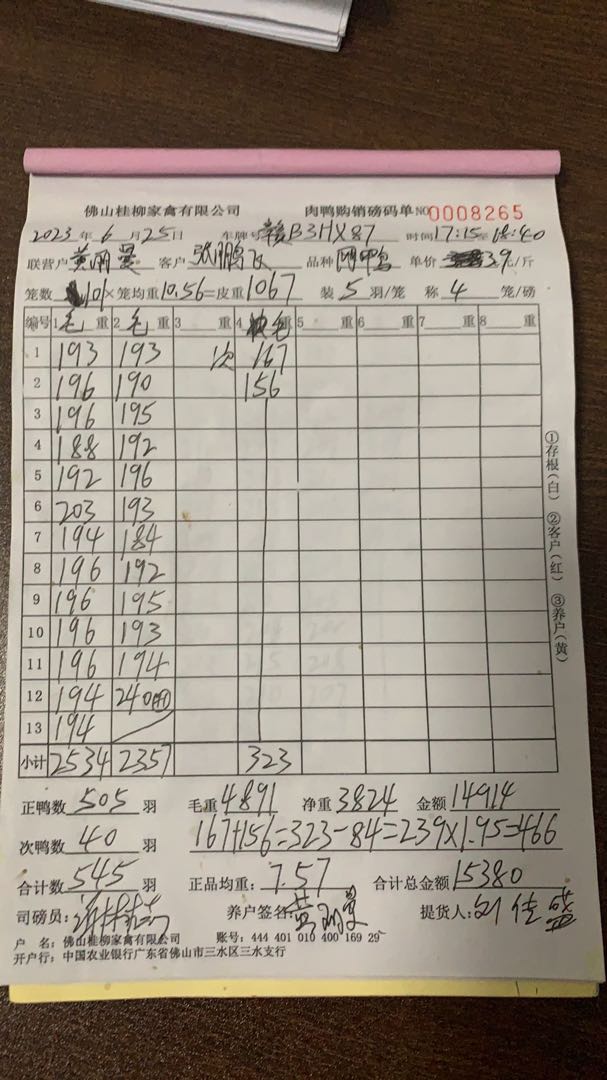 佛山桂柳家禽有限公司 肉鸭购销磅码单 NO 0008265
2023年6月25日 车牌号 赣B3HX87 时间17:15至18:40
联营户 客户 张鹏飞 品种 单价 3.9元/斤
笼数 101×笼均重10.56=皮重1067 装5羽/笼 称4笼/磅
编号 1毛重 2毛重 3重 4重 5重 6重 7重 8重
1 193 193 次 167
2 196 190 156
3 196 195
4 188 192
5 192 196
6 203 193
7 194 184
8 196 192
9 196 195
10 196 193
11 196 194
12 194 240
13 194
小计 2534 2357 323
正鸭数 505 羽 毛重 4891 净重 3824 金额 14914
次鸭数 40 羽 167+156=323-84=239×1.95=466
合计数 545 羽 正品均重: 7.57 合计总金额 15380
司磅员: 养户签名: 提货人: 刘佳盛
户 名: 佛山桂柳家禽有限公司 账号: 444 401 010 400 169 29
开户行: 中国农业银行广东省佛山市三水区三水支行
①存根(白) ②客户(红) ③养户(黄)